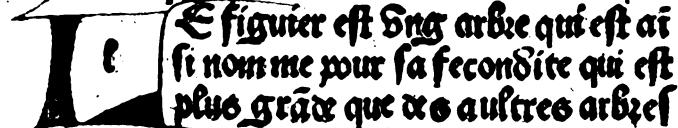 LE figuier est vng arbre qui est aĩ
si nomme pour sa fecondite qui est
plus grãde que des aultres arbres